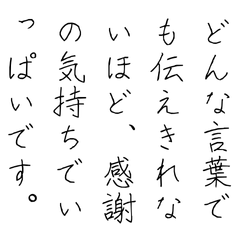 どんな言葉で
も伝えきれな
いほど、感謝
の気持ちでい
っぱいです。